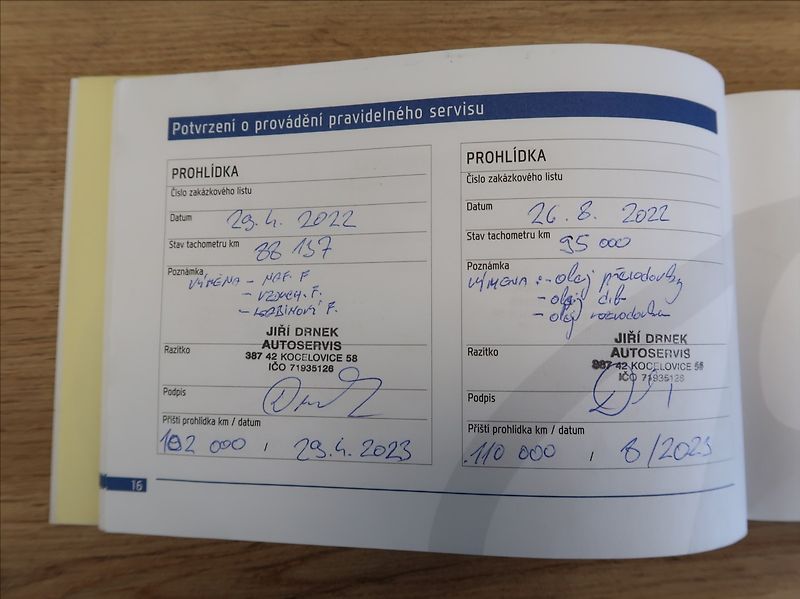 Potvrzení o provádění pravidelného servisu
PROHLÍDKA
Číslo zakázkového listu
Datum 29.4. 2022
Stav tachometru km 88 137
Poznámka
VÝMĚNA - NAF. F
- VZDUCH. F.
- KABINOVÝ F.
JIŘÍ DRNEK
AUTOSERVIS
387 42 KOCELOVICE 58
IČO 71935126
Razítko
Podpis
Příští prohlídka km / datum
102 000 / 29.4.2023
PROHLÍDKA
Číslo zakázkového listu
Datum 26.8. 2022
Stav tachometru km 95 000
Poznámka
VÝMĚNA: - olej převodovky
- olej dif.
- olej rozvodovka
JIŘÍ DRNEK
AUTOSERVIS
387 42 KOCELOVICE 58
IČO 71935126
Razítko
Podpis
Příští prohlídka km / datum
110 000 / 8/2023
16